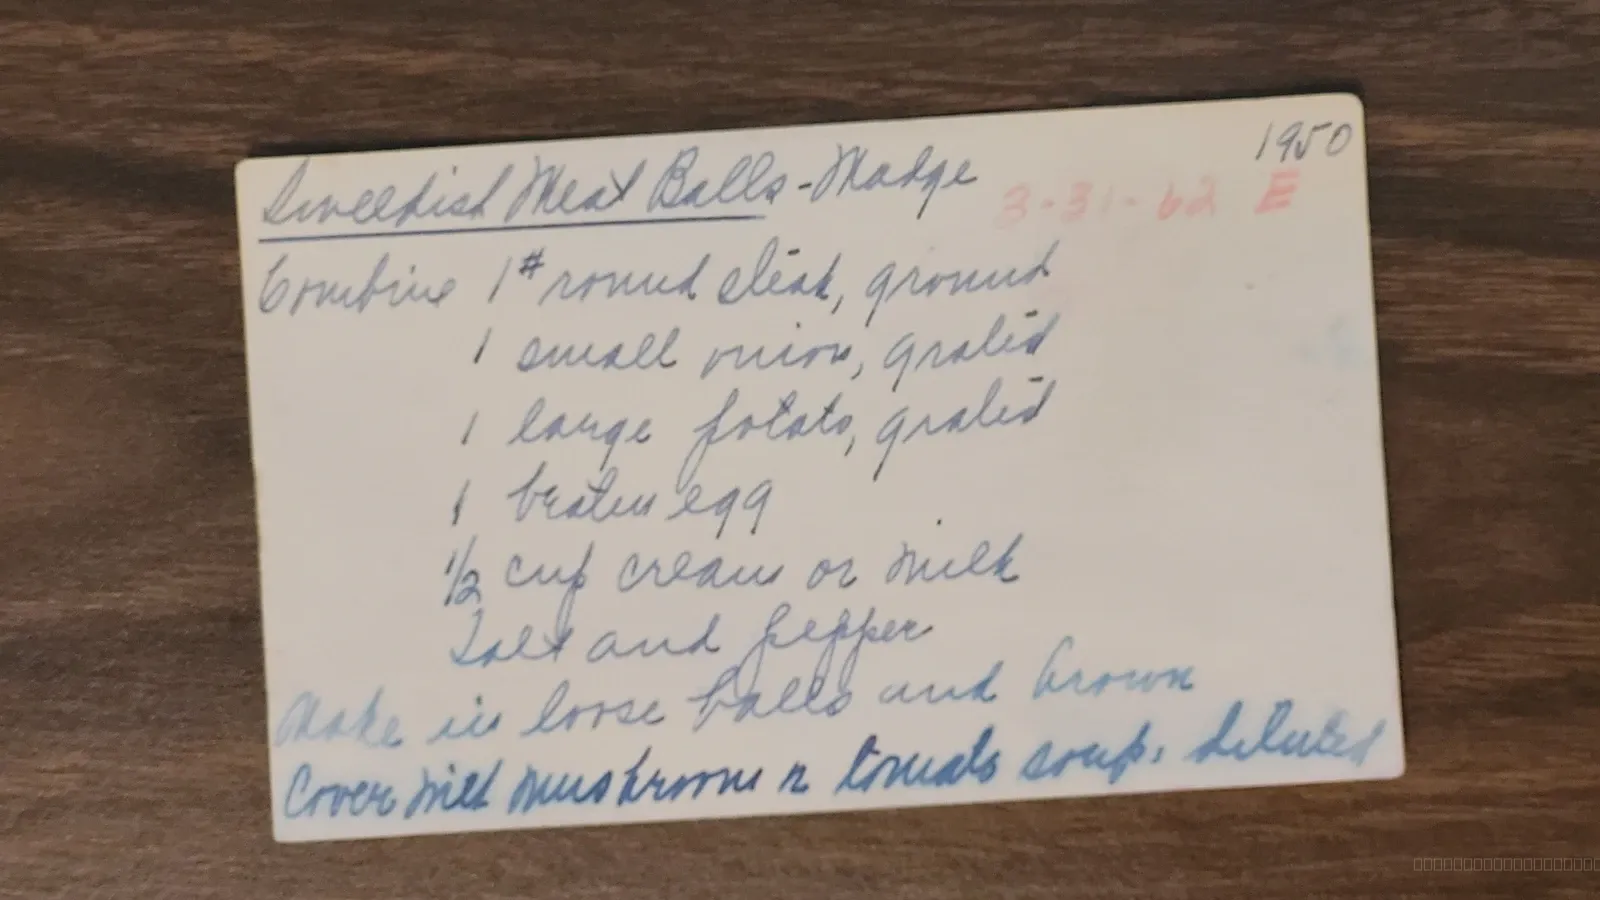 Sweedish Meat Balls - Madge 1950
3-31-62 E
Combine 1# round steak, ground
1 small onion, grated
1 large potato, grated
1 beaten egg
1/2 cup cream or milk
Salt and pepper
Make in loose balls and brown
Cover with mushroom or tomato soup, diluted